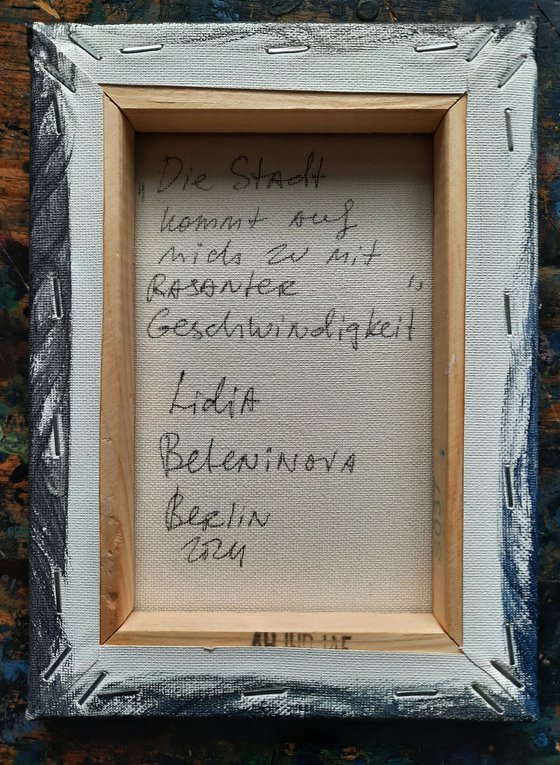 Die Stadt
kommt auf
mich zu mit
RASANTER
Geschwindigkeit"
Lidia
Beleninova
Berlin
2024